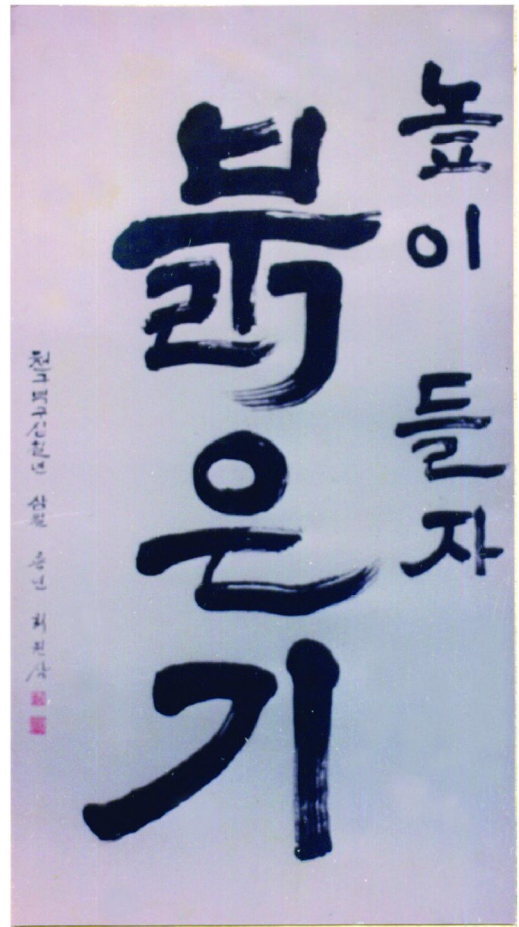 높이 들자
붉은기